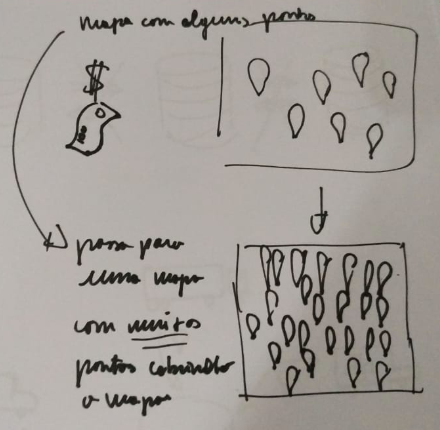 mapa com alguns pontos
$
passa para
uma mapa
com muitos
pontos cobrindo
o mapa